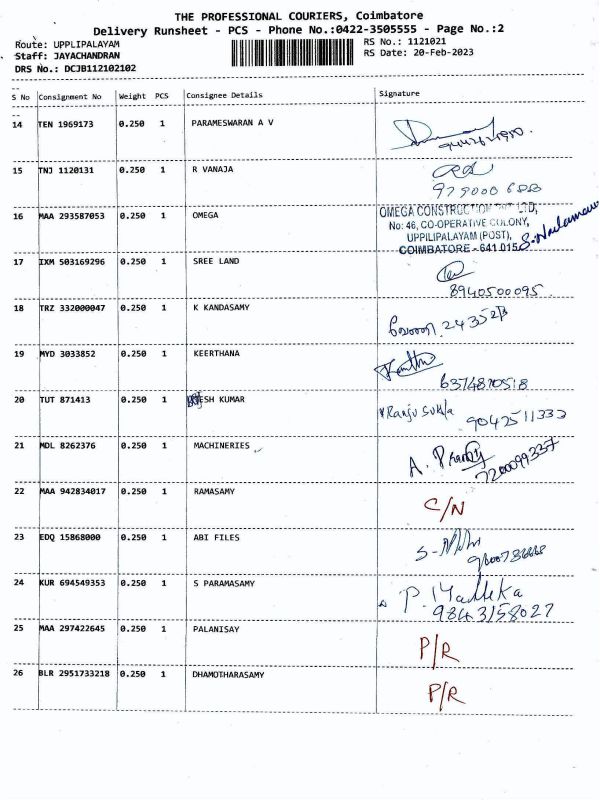 THE PROFESSIONAL COURIERS, Coimbatore
Delivery Runsheet - PCS - Phone No.:0422-3505555 - Page No.:2
Route: UPPLIPALAYAM RS No.: 1121021
Staff: JAYACHANDRAN RS Date: 20-Feb-2023
DRS No.: DCJB112102102
S No Consignment No Weight PCS Consignee Details Signature
14 TEN 1969173 0.250 1 PARAMESWARAN A V
15 TNJ 1120131 0.250 1 R VANAJA
16 MAA 293587053 0.250 1 OMEGA OMEGA CONSTRUCTION PVT LTD,
No: 46, CO-OPERATIVE COLONY,
UPPILIPALAYAM (POST),
COIMBATORE - 641 015
17 IXM 503169296 0.250 1 SREE LAND
8940500095
18 TRZ 332000047 0.250 1 K KANDASAMY
19 MYD 3033852 0.250 1 KEERTHANA
6374870518
20 TUT 871413 0.250 1 ESH KUMAR Ranju Sukla 9042511333
21 MDL 8262376 0.250 1 MACHINERIES A.
7200099337
22 MAA 942834017 0.250 1 RAMASAMY C/N
23 EDQ 15868000 0.250 1 ABI FILES
24 KUR 694549353 0.250 1 S PARAMASAMY P.
9843158027
25 MAA 297422645 0.250 1 PALANISAY P/R
26 BLR 2951733218 0.250 1 DHAMOTHARASAMY P/R